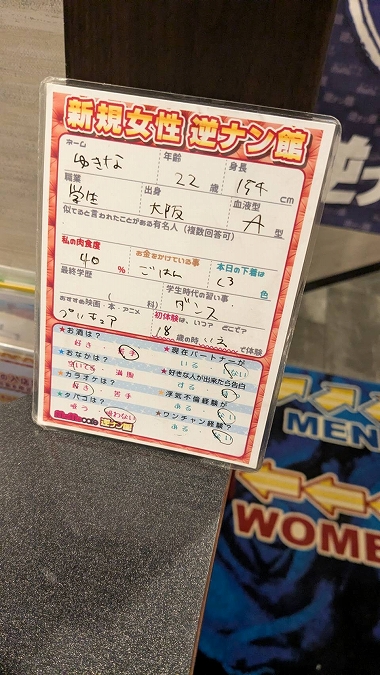 新規女性 逆ナン館
ネーム ゆきな
年齢 22 歳
身長 154 cm
職業 学生
出身 大阪
血液型 A 型
似てると言われたことがある有名人(複数回答可)
私の肉食度 40 %
お金をかけている事 ごはん
本日の下着は くろ 色
最終学歴 ( 科)
学生時代の習い事 ダンス
おすすめ映画・本・アニメ プリキュア
初体験は、いつ? どこで?
18歳の時 いえ で体験
★お酒は?
好き 苦手
★現在パートナーが
いる ない
★おなかは?
すいてる 満腹
★好きな人が出来たら告白
する
★カラオケは?
好き 苦手
★浮気不倫経験が
ある ない
★タバコは?
吸う 吸わない
★ワンチャン経験?
ある ない
逆ナン館
逆ナ
MEN
WOME